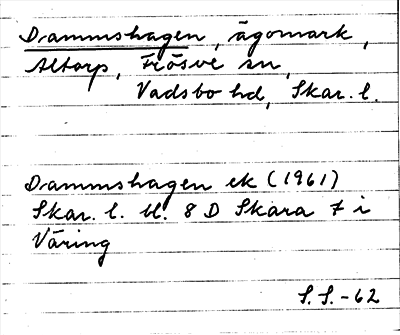 Dammshagen, ägomark,
Altorp, Frösve sn,
Vadsbo hd, Skar. l.
Dammshagen ek (1961)
Skar. l. bl. 8 D Skara 7 i
Väring
S. S. -62